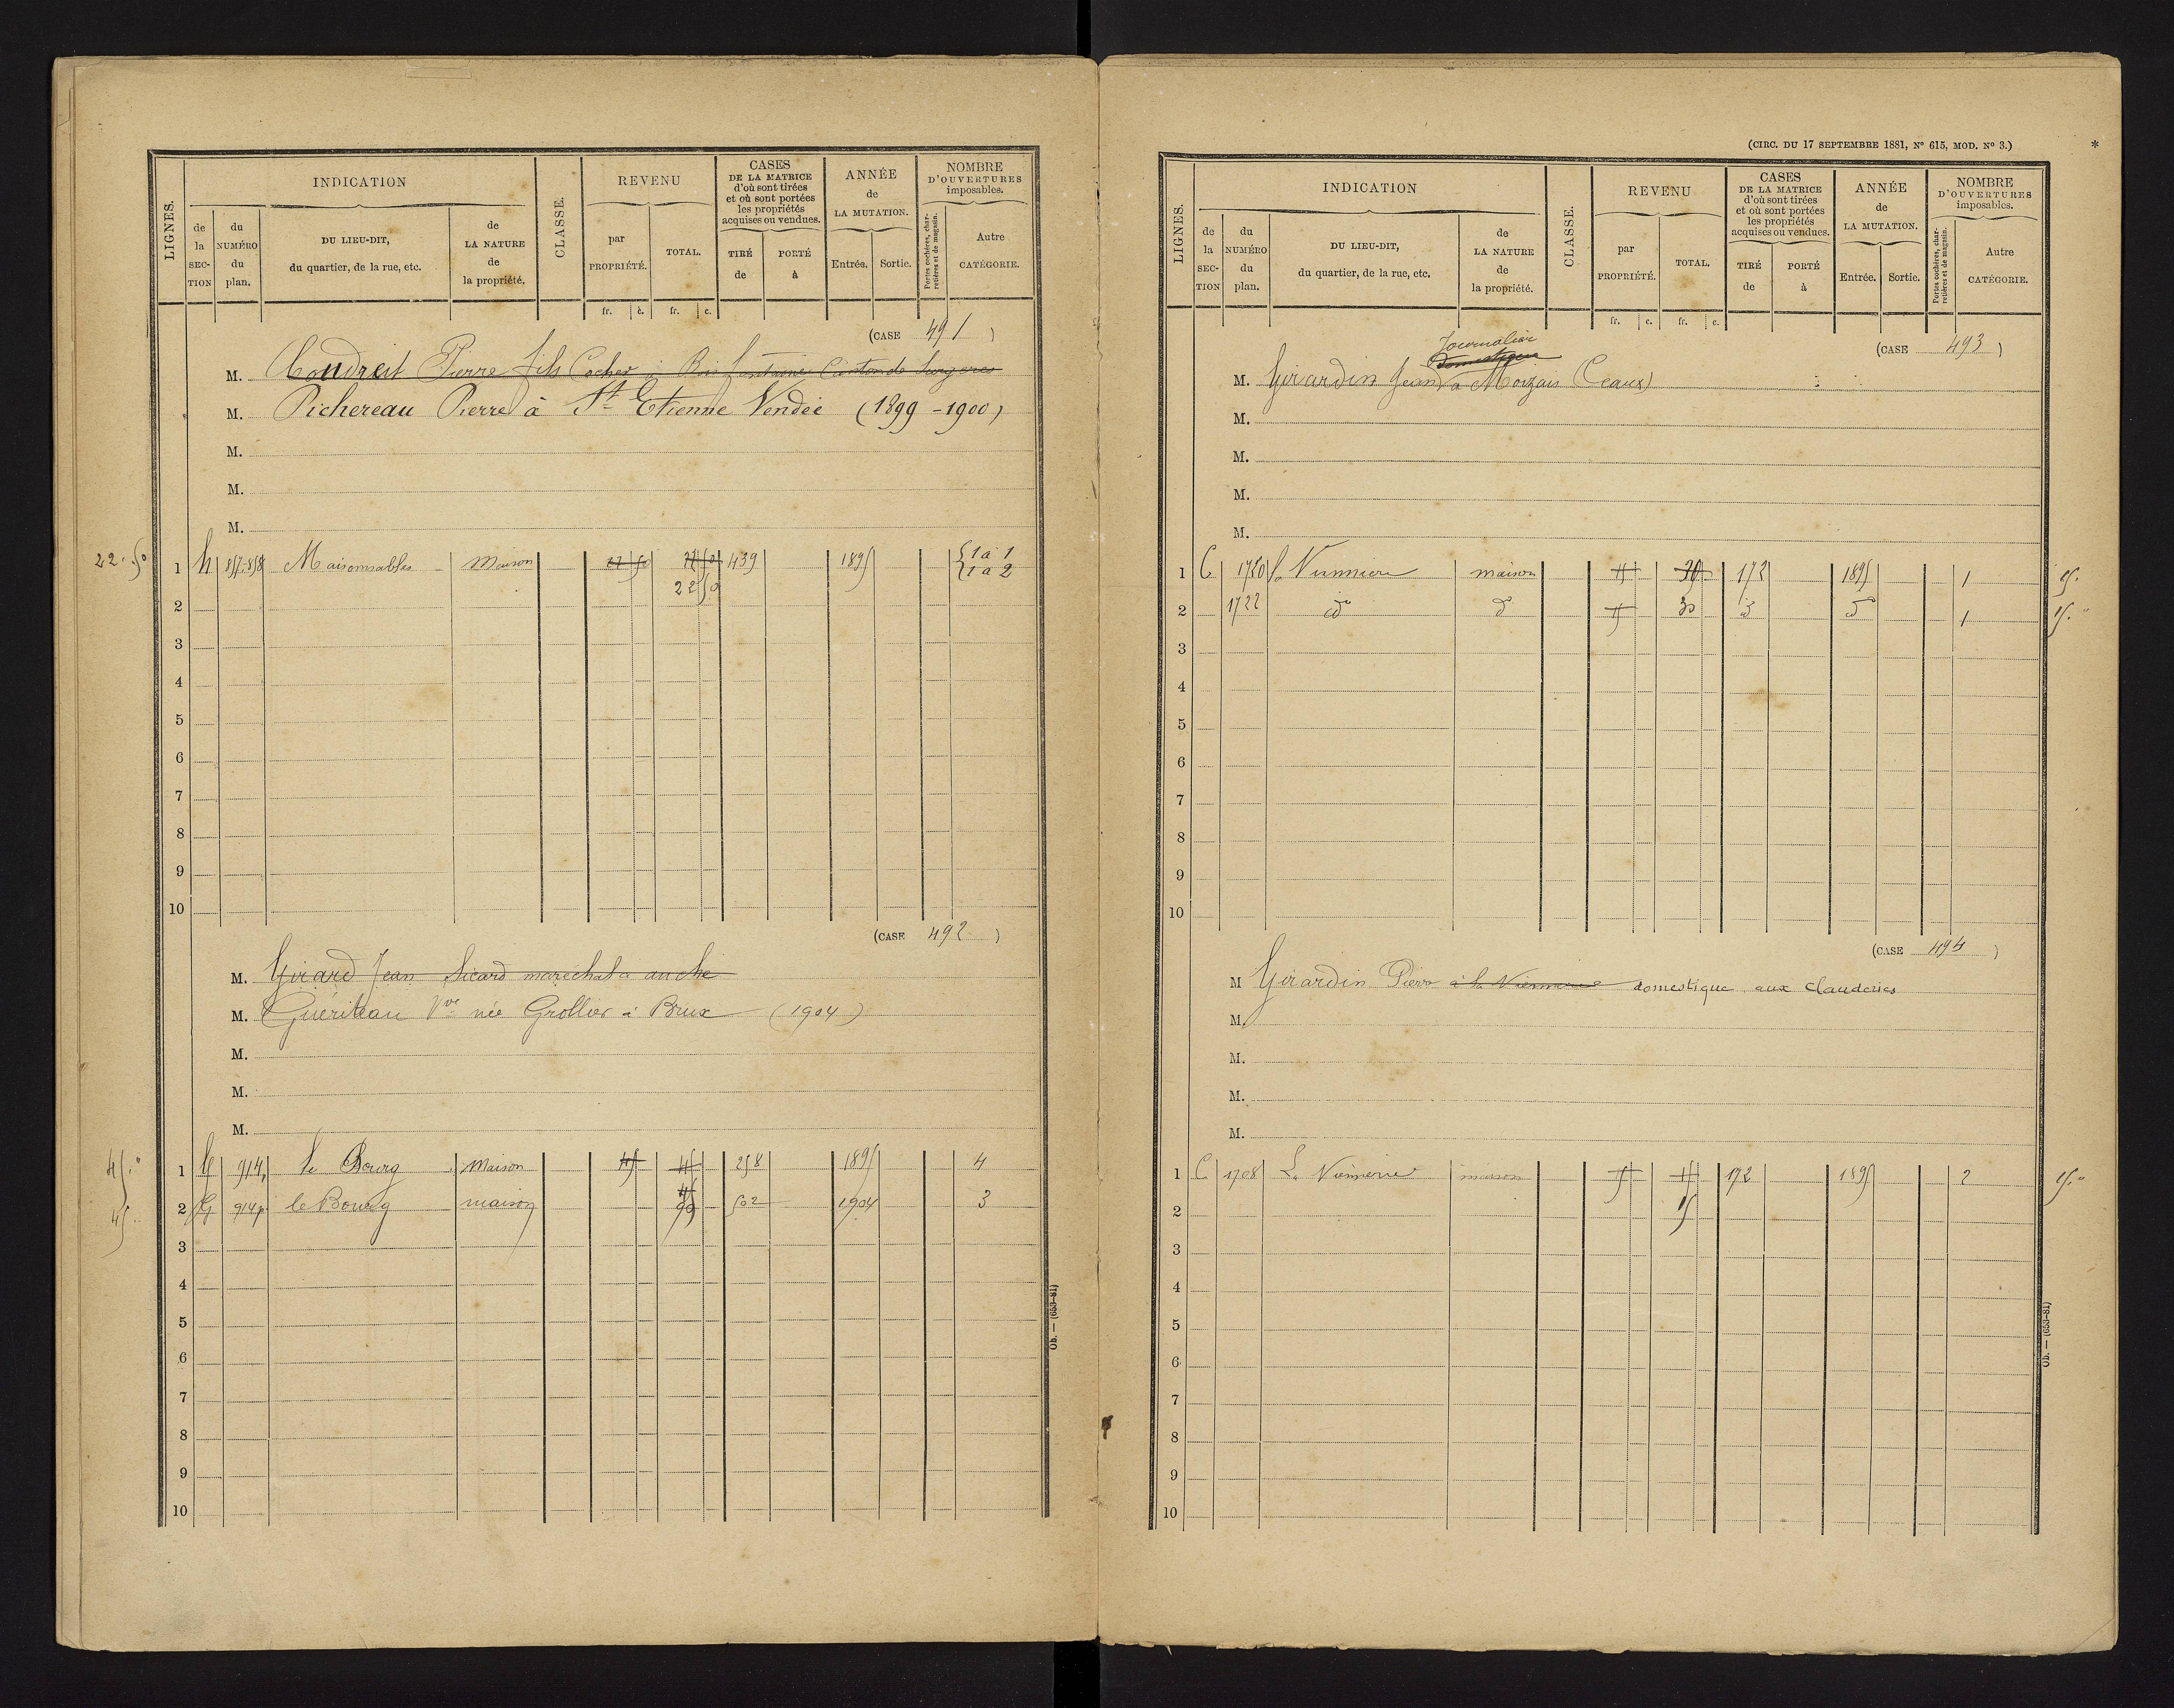 LIGNES.
INDICATION
de la SECTION
du NUMÉRO du plan.
DU LIEU-DIT, du quartier, de la rue, etc.
de LA NATURE de la propriété.
CLASSE.
REVENU
par PROPRIÉTÉ.
TOTAL.
CASES DE LA MATRICE d'où sont tirées et où sont portées les propriétés acquises ou vendues.
TIRÉ de
PORTÉ à
ANNÉE de LA MUTATION.
Entrée.
Sortie.
NOMBRE D'OUVERTURES imposables.
Portes cochères, charretières et de magasin.
Autre CATÉGORIE.
fr. c. fr. c.
(CASE 491)
M. Coudret Pierre fils Cocher à Canton de Surgeres
M. Pichereau Pierre à St Etienne Vendée (1899 - 1900)
M.
M.
M.
22.50 1 857.858 Maisonsables Maison 22 50 22 50 439 1895 1 à 1
1 à 2
22 50
2
3
4
5
6
7
8
9
10
(CASE 492)
M. Girard Jean Sicard maréchal a anché
M. Guériteau Vve née Grollier à Brux (1904)
M.
M.
M.
45." 1 G 914 le Bourg Maison 45 45 258 1895 4
45.. 2 G 914p. le Bourg maison 45 90 502 1904 3
3
4
5
6
7
8
9
10
Ob. — (653-81)
(CIRC. DU 17 SEPTEMBRE 1881, N° 615, MOD. N° 3.) *
LIGNES.
INDICATION
de la SECTION
du NUMÉRO du plan.
DU LIEU-DIT, du quartier, de la rue, etc.
de LA NATURE de la propriété.
CLASSE.
REVENU
par PROPRIÉTÉ.
TOTAL.
CASES DE LA MATRICE d'où sont tirées et où sont portées les propriétés acquises ou vendues.
TIRÉ de
PORTÉ à
ANNÉE de LA MUTATION.
Entrée.
Sortie.
NOMBRE D'OUVERTURES imposables.
Portes cochères, charretières et de magasin.
Autre CATÉGORIE.
fr. c. fr. c.
(CASE 493)
Journalier
M. Girardin Jean domestique à Moizais (Ceaux)
M.
M.
M.
M.
1 C 1720 maison 15 30 172 1895 1 15.
2 1722 do do 15 30 do do 1 15."
3
4
5
6
7
8
9
10
(CASE 494)
M Girardin Pierre domestique aux Clauderies
M.
M.
M.
M.
1 C 1708 maison 15 15 172 1895 2 15."
2 15
3
4
5
6
7
8
9
10
Ob. — (653-81)